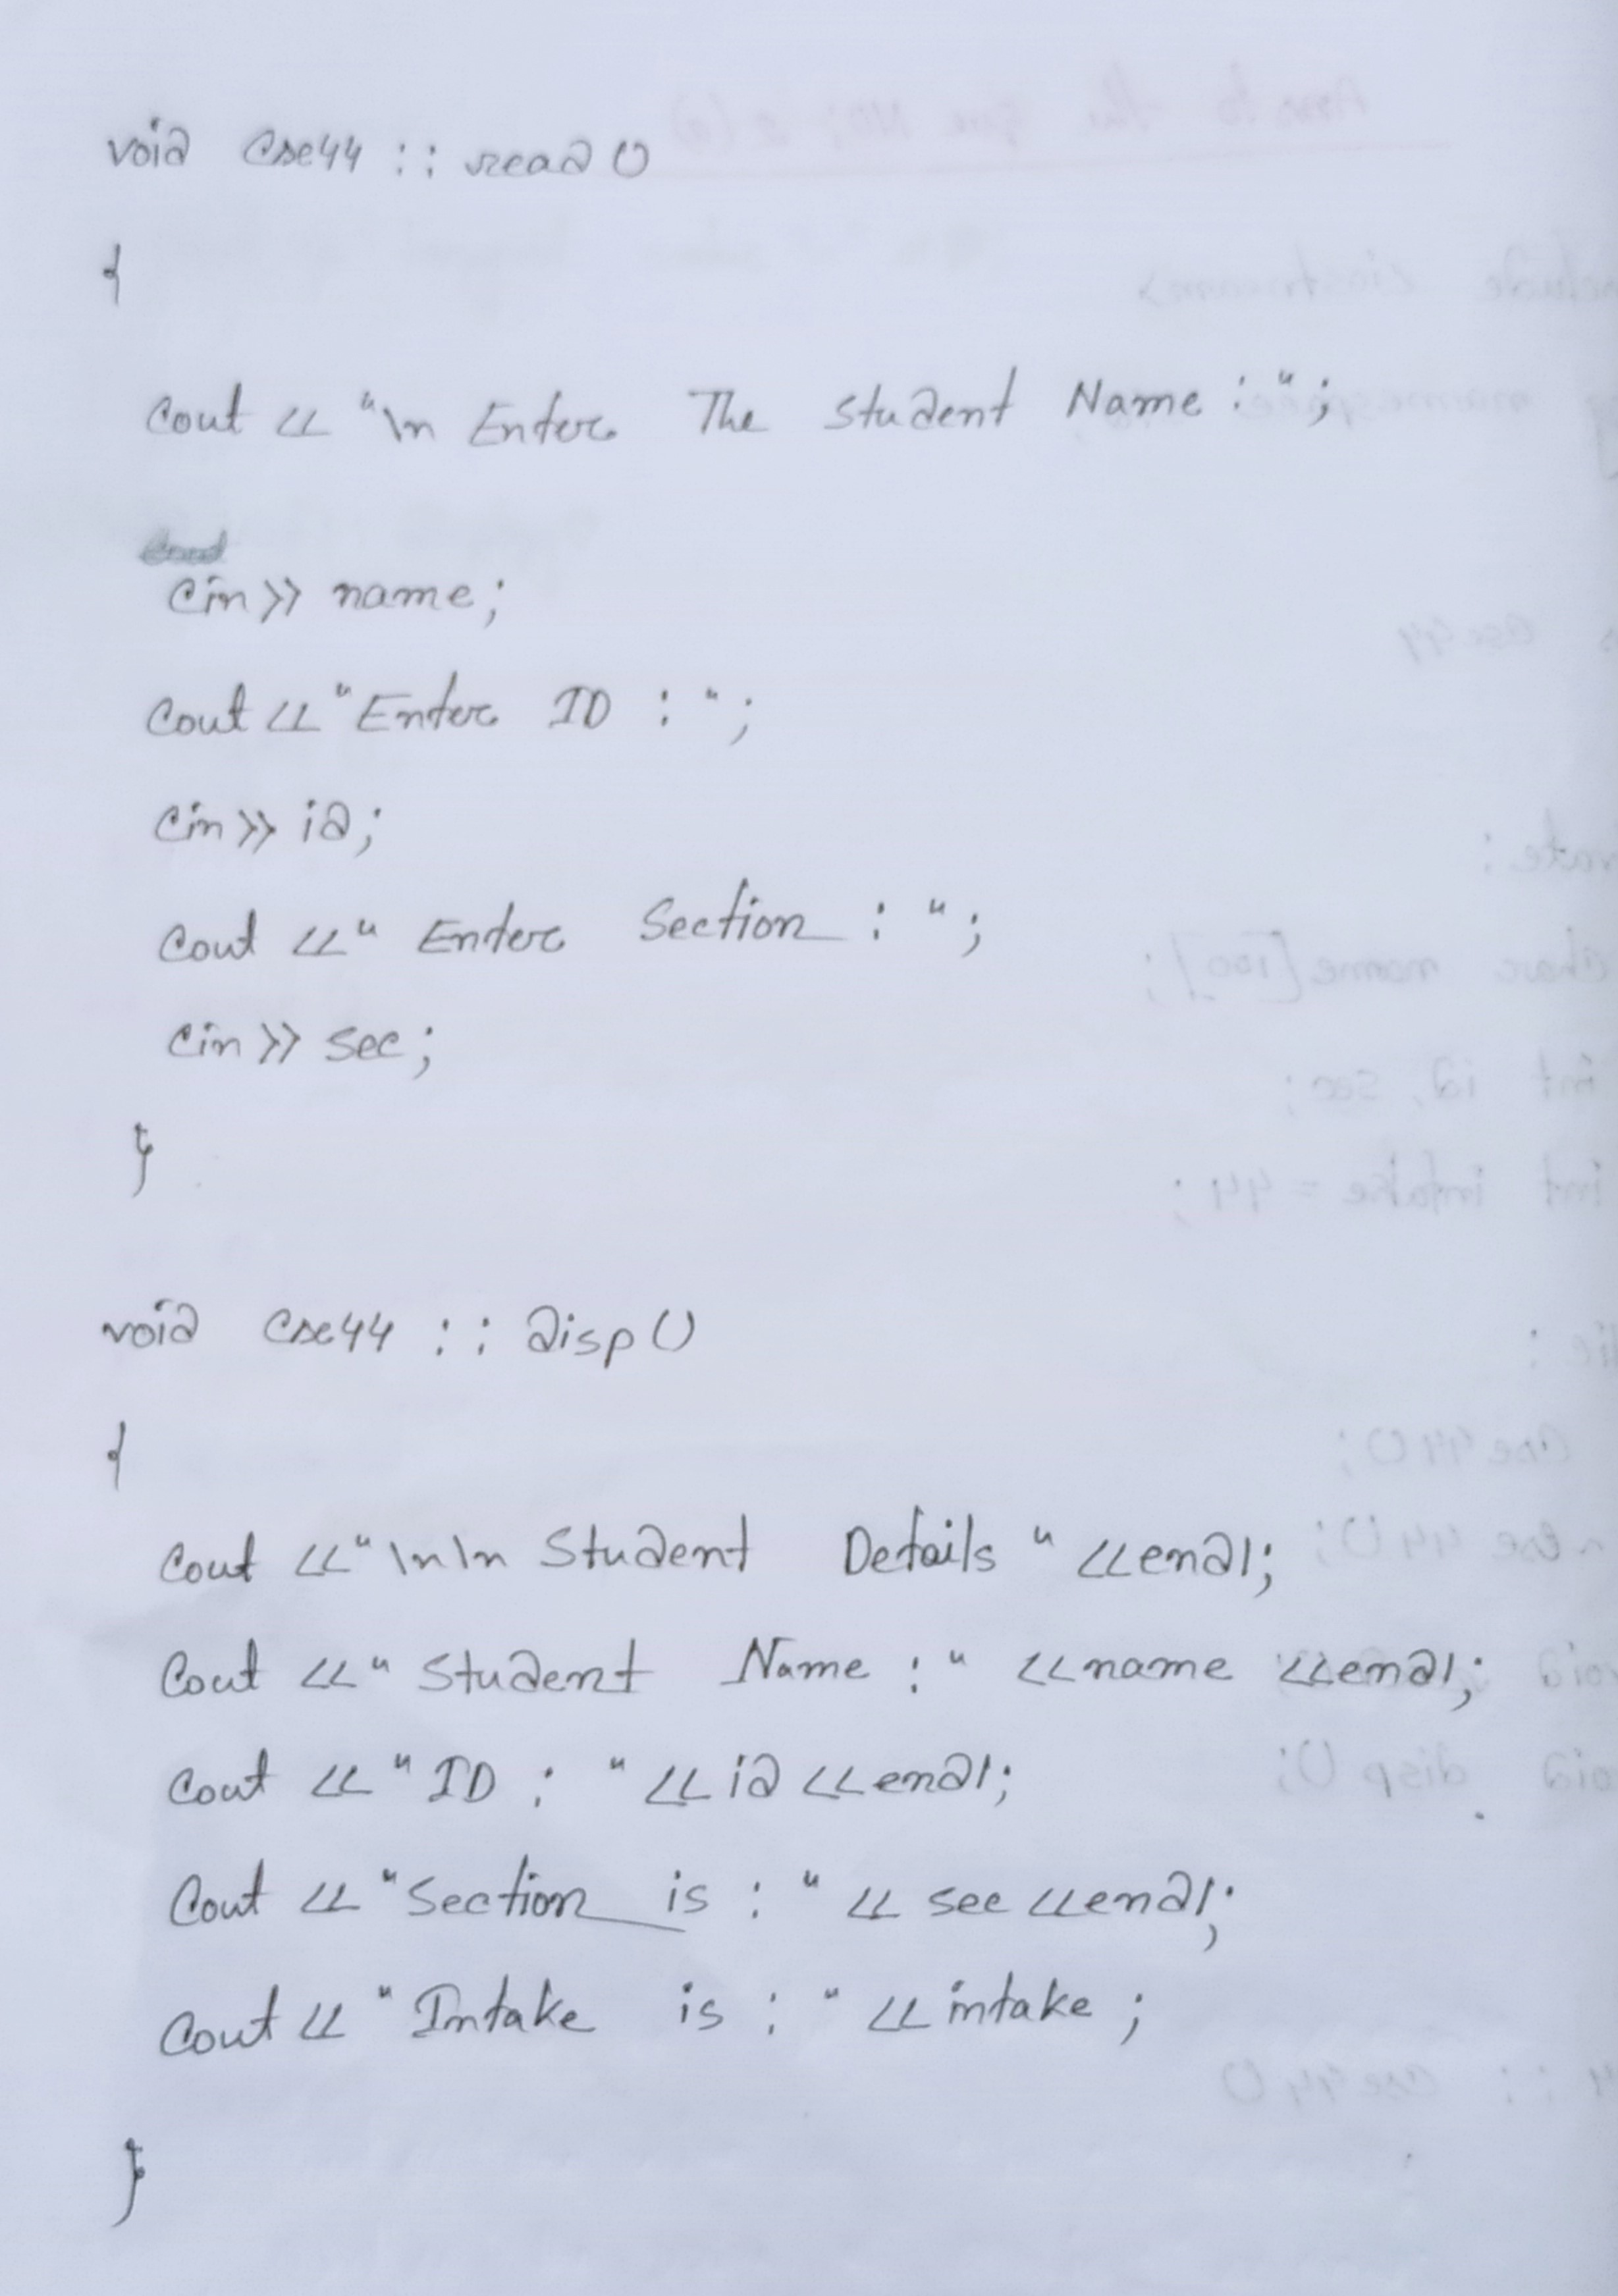 void Cse44 :: read ()
{
cout << "\n Enter The Student Name : ";
cin >> name;
cout << "Enter ID : ";
cin >> id;
cout << " Enter Section : ";
cin >> sec;
}
void Cse44 :: disp ()
{
cout << "\n\n Student Details " << endl;
cout << " Student Name : " << name << endl;
cout << " ID : " << id << endl;
cout << "Section is : " << sec << endl;
cout << "Intake is : " << intake ;
}